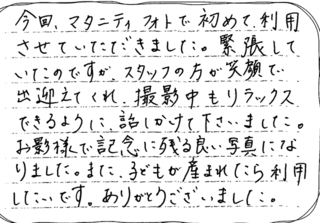 今回、マタニティフォトで初めて利用
させていただきました。緊張して
いたのですが、スタッフの方が笑顔で
出迎えてくれ、撮影中もリラックス
できるように、話しかけて下さいました。
お影様で記念に残る良い写真にな
りました。また、子どもが産まれたら利用
したいです。ありがとうございました。